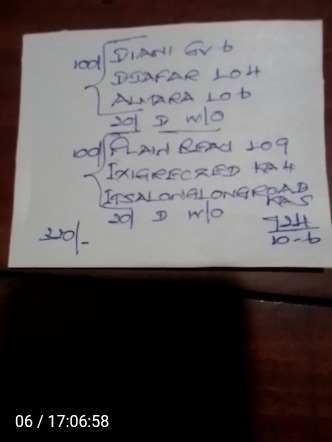 100/ DIANI GV 6
DJAFAR LO4
ALMARA LO6
20/ D W/O
100/ PLAIN BEAU LO9
IXIGRECZED KA4
ITSALONGLONGROAD KA5
20/ D W/O
220/-
724
10-6
06 / 17:06:58